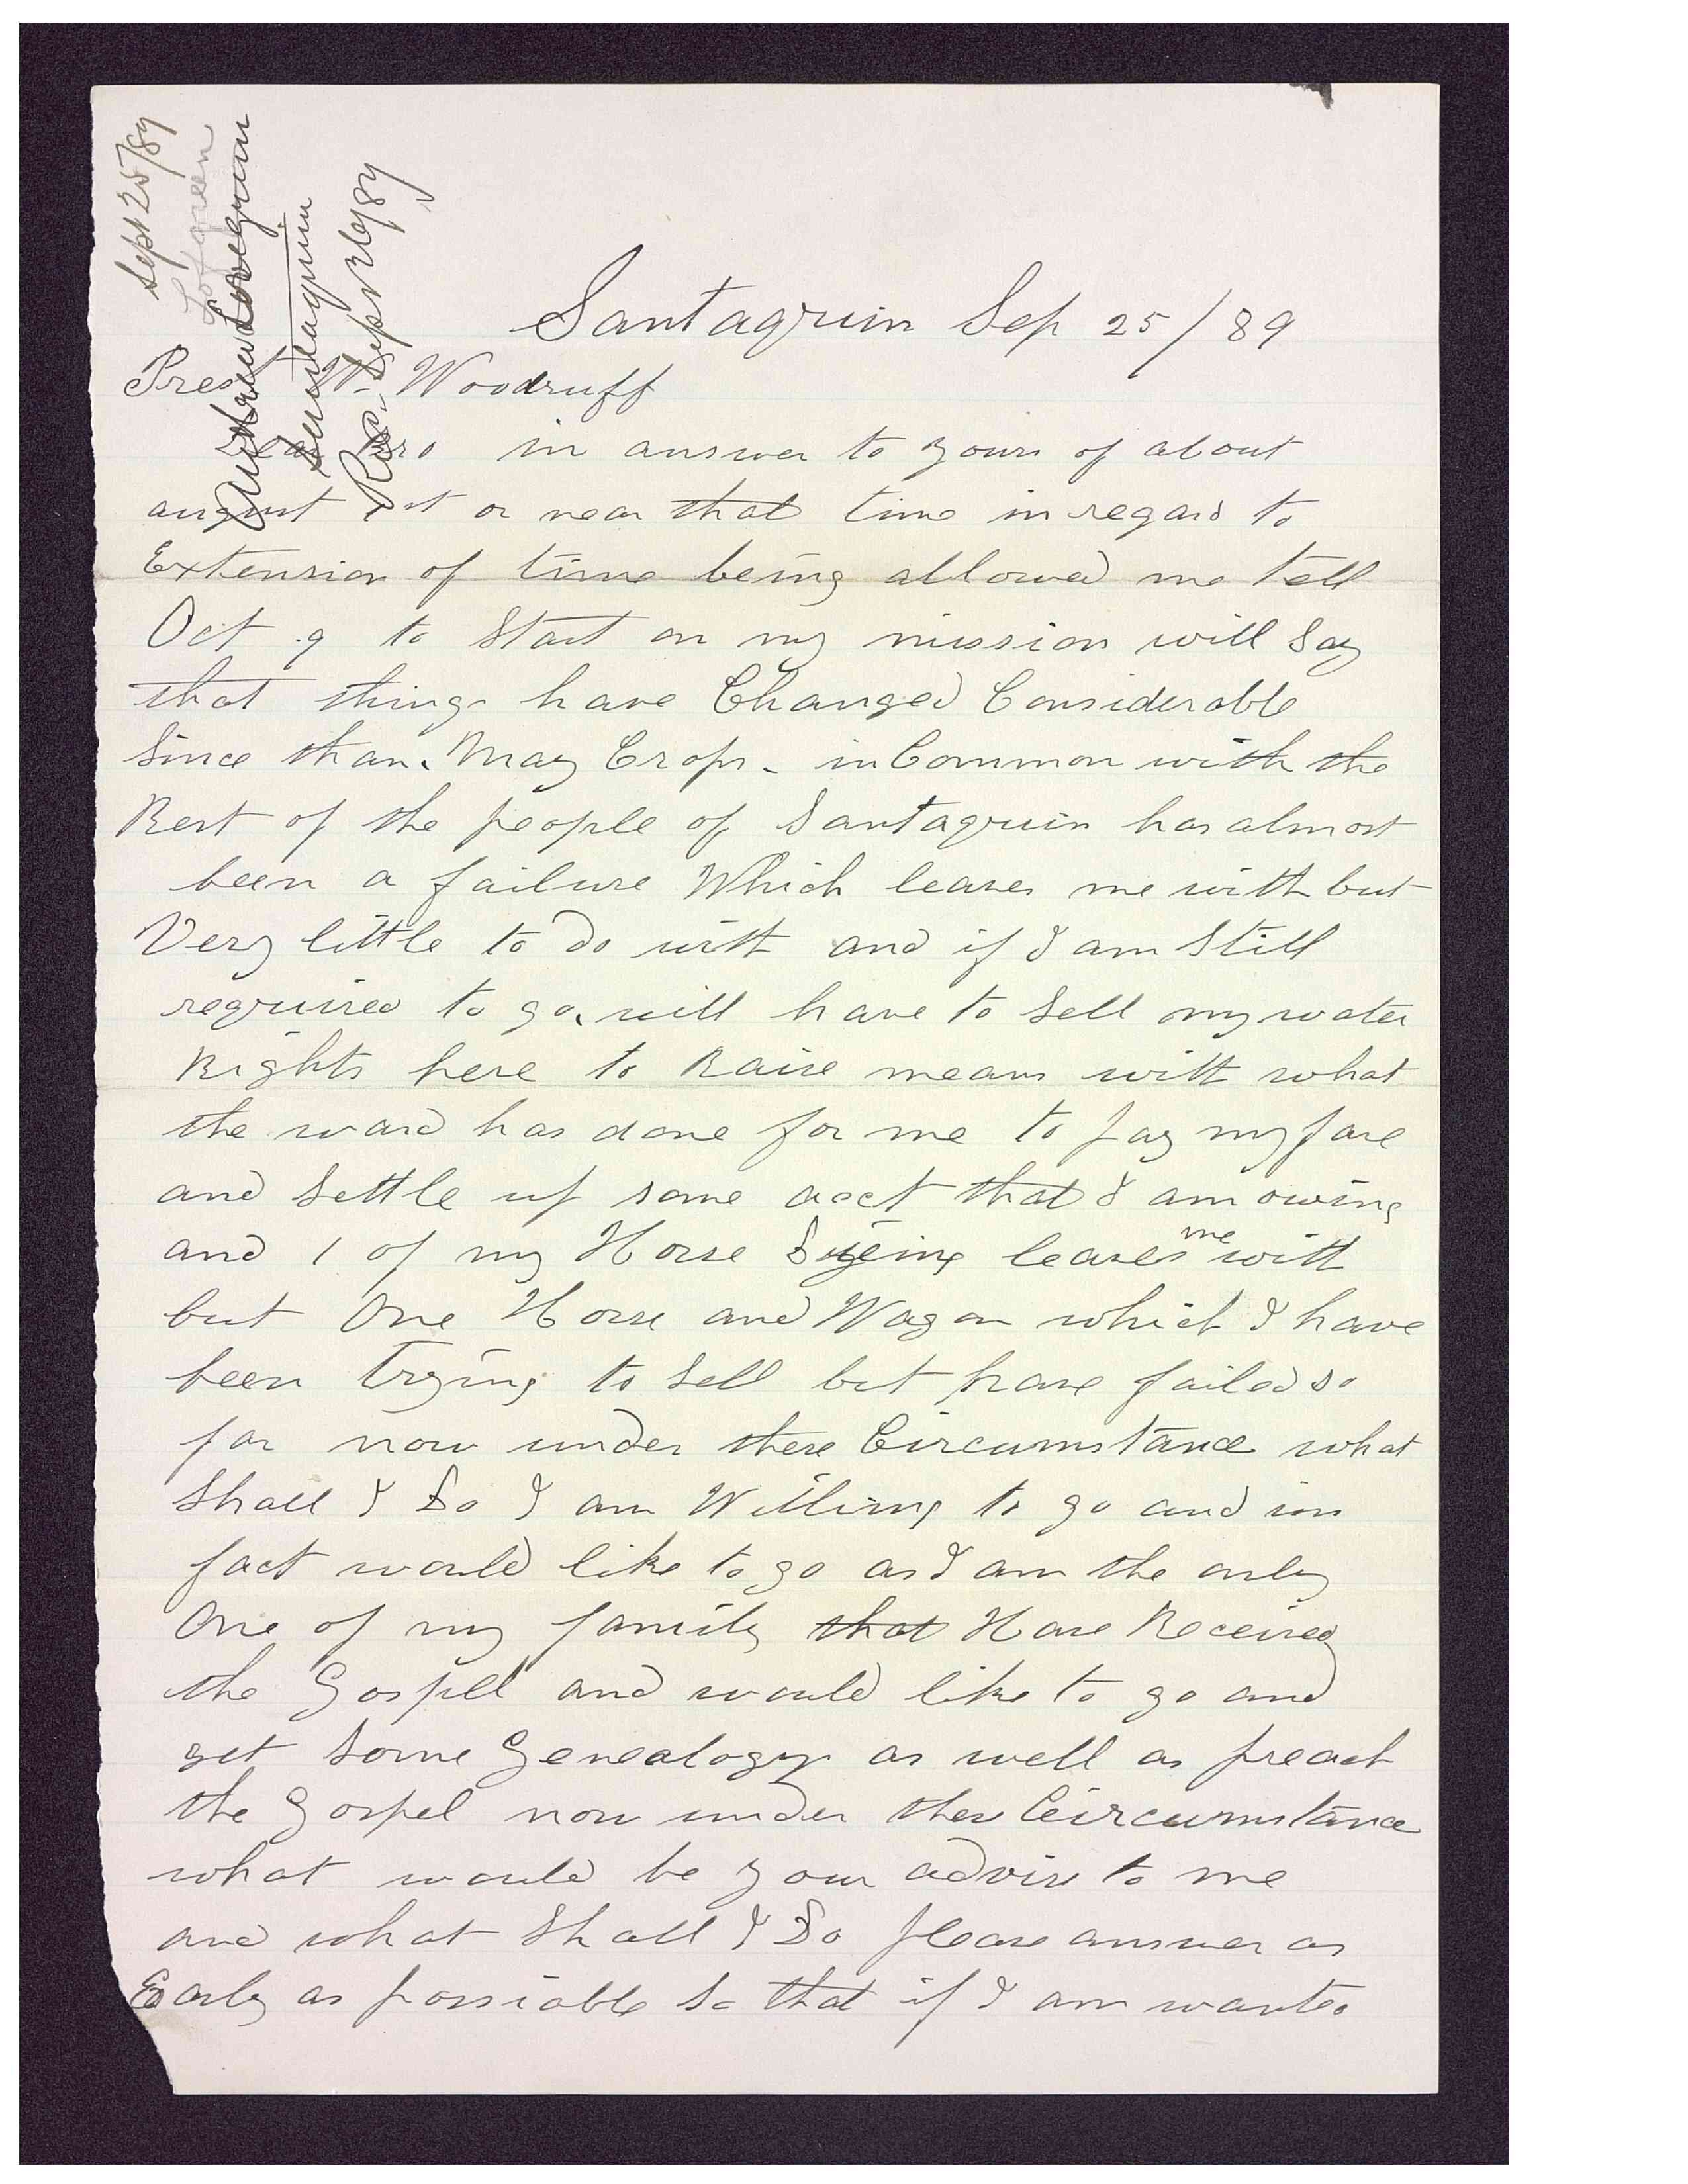 Sept 25/89
Lofgreen
Andrew Lovegreen
Santaquin
Rec. Sept 26/89
Santaquin Sep 25/89
Prest W. Woodruff
Dear Bro in answer to yours of about
august 1st or near that time in regard to
Extension of time being allowed me tell
Oct 9 to Start on my mission will Say
that things have Changed Considerable
Since than. May Crops. in Common with the
Rest of the people of Santaquin has almost
been a failure Which leaves me with but
Very little to do with and if I am Still
required to go, will have to Sell my water
Rights here to Raise means with what
the ward has done for me to pay my fare
and Settle up some acct that I am owing
and 1 of my Horse Dyeing leaves me with
but One Horse and Wagon which I have
been Trying to Sell but have failed so
far now under these Circumstance what
Shall I Do I am Willing to go and in
fact would like to go as I am the only
One of my family that Have Received
the Gospell and would like to go and
get Some Genealogy as well as preach
the Gospel now under these Circumstance
what would be your advise to me
and what Shall I Do please answer as
Early as possiable so that if I am wanted